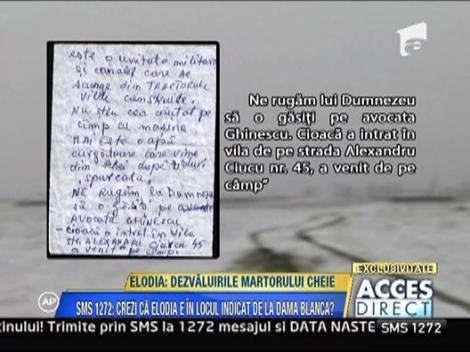 este o unitate militara
și canalul care se
scurge din TRACTORUL
Vilele construite.
NU știu cea căutat pe
cîmp cu mașina
MAI ESTE o apă
curgătoare care vine
din
spurcată.
NE Rugăm lu Dumneze
să o găsiți pe avocata
AVOCATA GHINESCU
cioacă a intrat în Vila
str. ALEXANDRU Ciurcu 45
a venit pe cîmp.
Ne rugăm lui Dumnezeu
să o găsiți pe avocata
Ghinescu. Cioacă a intrat în
vila de pe strada Alexandru
Ciucu nr. 45, a venit de pe
câmp"
a
ELODIA: DEZVĂLUIRILE MARTORULUI CHEIE
SMS 1272: CREZI CĂ ELODIA E ÎN LOCUL INDICAT DE LA DAMA BLANCA?
AP
EXCLUSIVITATE
ACCES
DIRECT
tinului! Trimite prin SMS la 1272 mesajul si DATA NASTE
SMS 1272